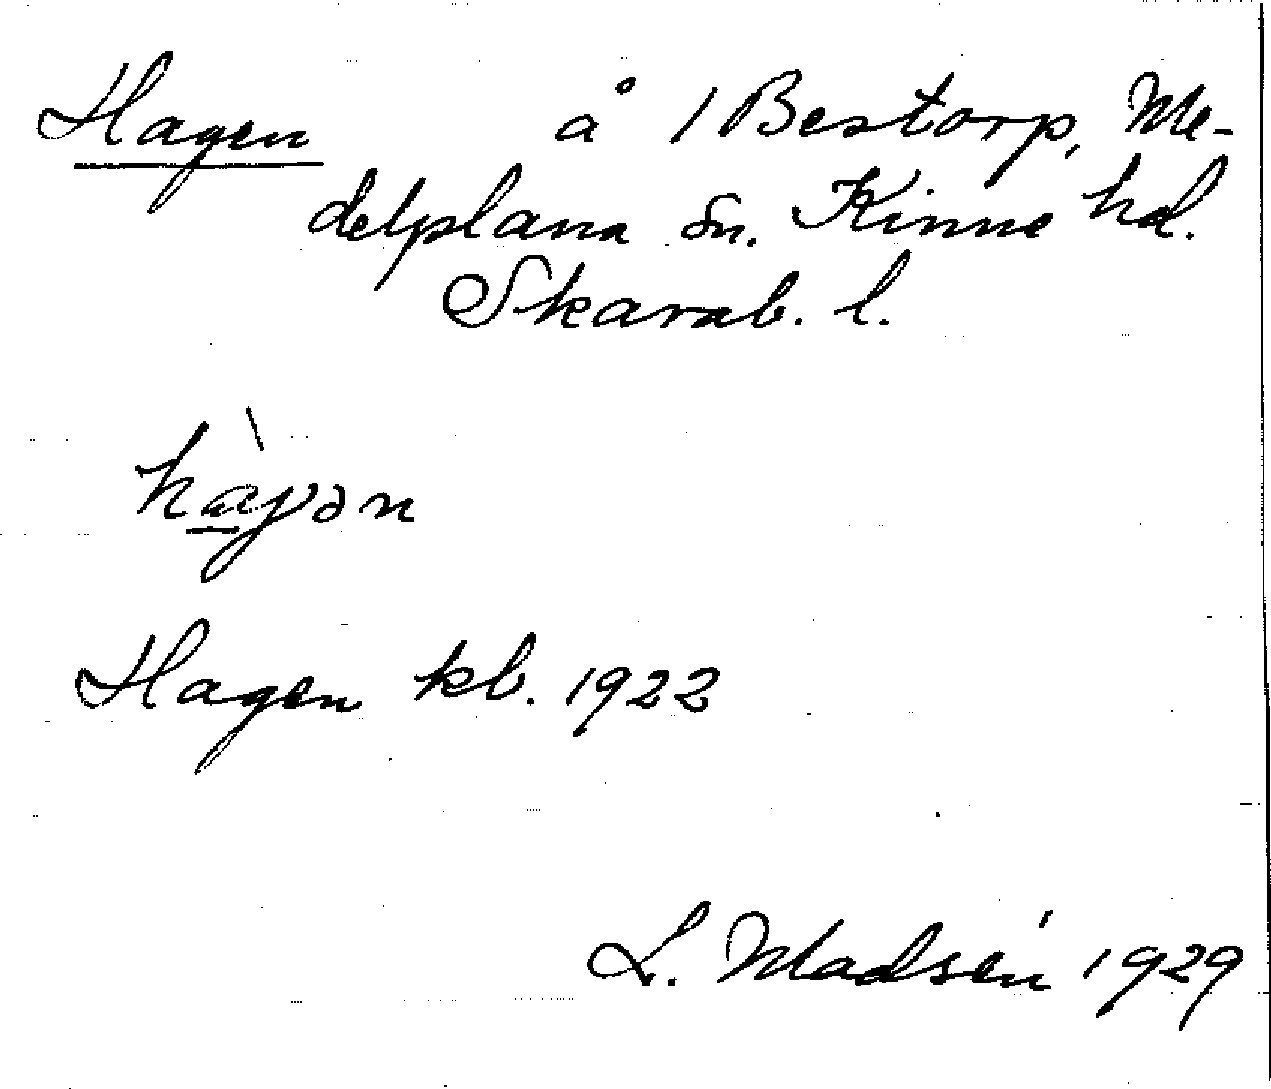 Hagen å 1 Bestorp, Me-
delplana sn. Kinne hd.
Skarab. l.
hàɣən
Hagen kb. 1922
L. Madsén 1929